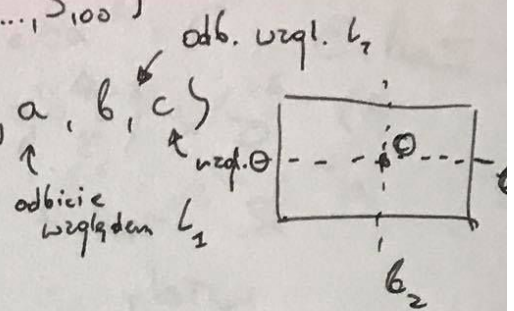 ..., 100 }
odb. wzgl. L₂
, a, b, c }
wzgl. Θ
Θ
odbicie
względem L₁
L₂